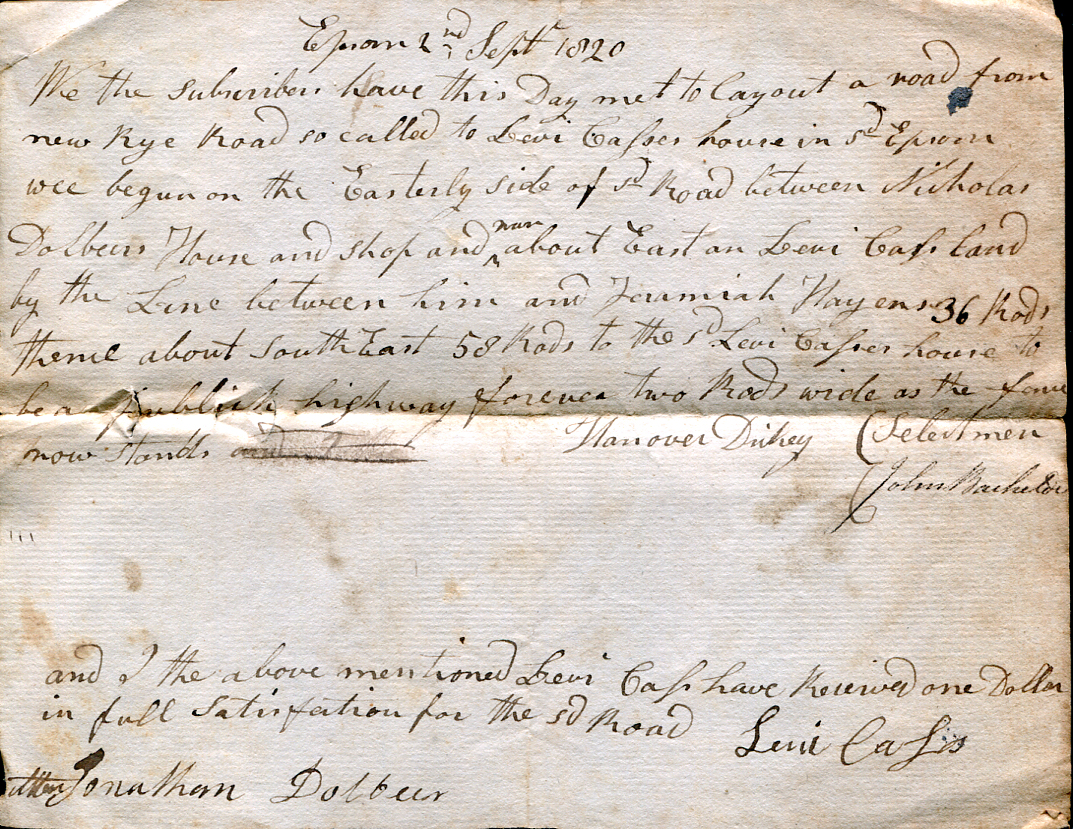 Epsom 2nd Sept 1820
We the Subscribers have this Day met to layout a road from
new Rye Road so called to Levi Casses house in sd Epsom
wee begun on the Easterly side of sd Road between Nicholas
Dolbeers House and shop and run about East on Levi Cass land
by the Line between him and Jeramiah Hayens 36 Rods
thence about South East 58 Rods to the sd Levi Casses house to
be a publick highway forever two Rods wide as the fence
now stands
Hanover Dickey (Selectmen
John Bachelder
and I the above mentioned Levi Cass have Received one Doller
in full Satisfaction for the sd Road
Levi Cass
atten Jonathan Dolbeer